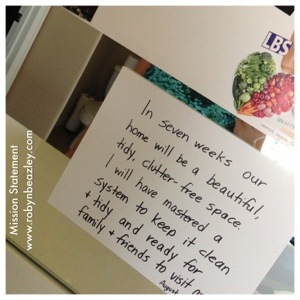 Mission Statement
www.robynbeazley.com
LBS
In seven weeks our
home will be a beautiful,
tidy, clutter-free space.
I will have mastered a
system to keep it clean
& tidy and ready for
family & friends to visit
August